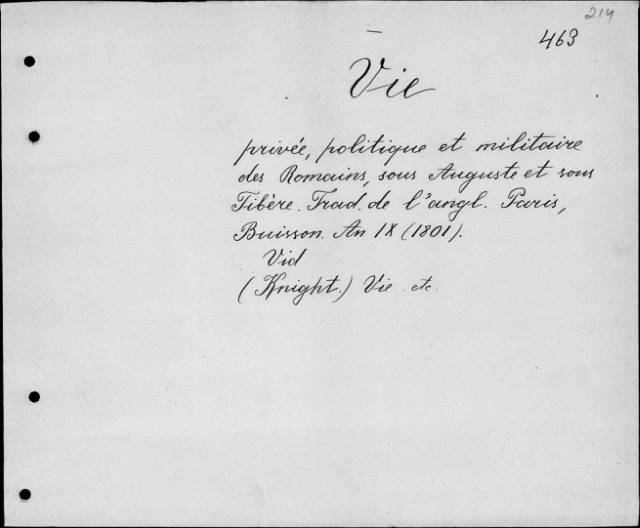 214
463
Vie
privée, politique et militaire
des Romains, sous Auguste et sous
Tibère. Trad. de l'angl. Paris,
Buisson. An IX (1801).
Vid
(Knight.) Vie etc.